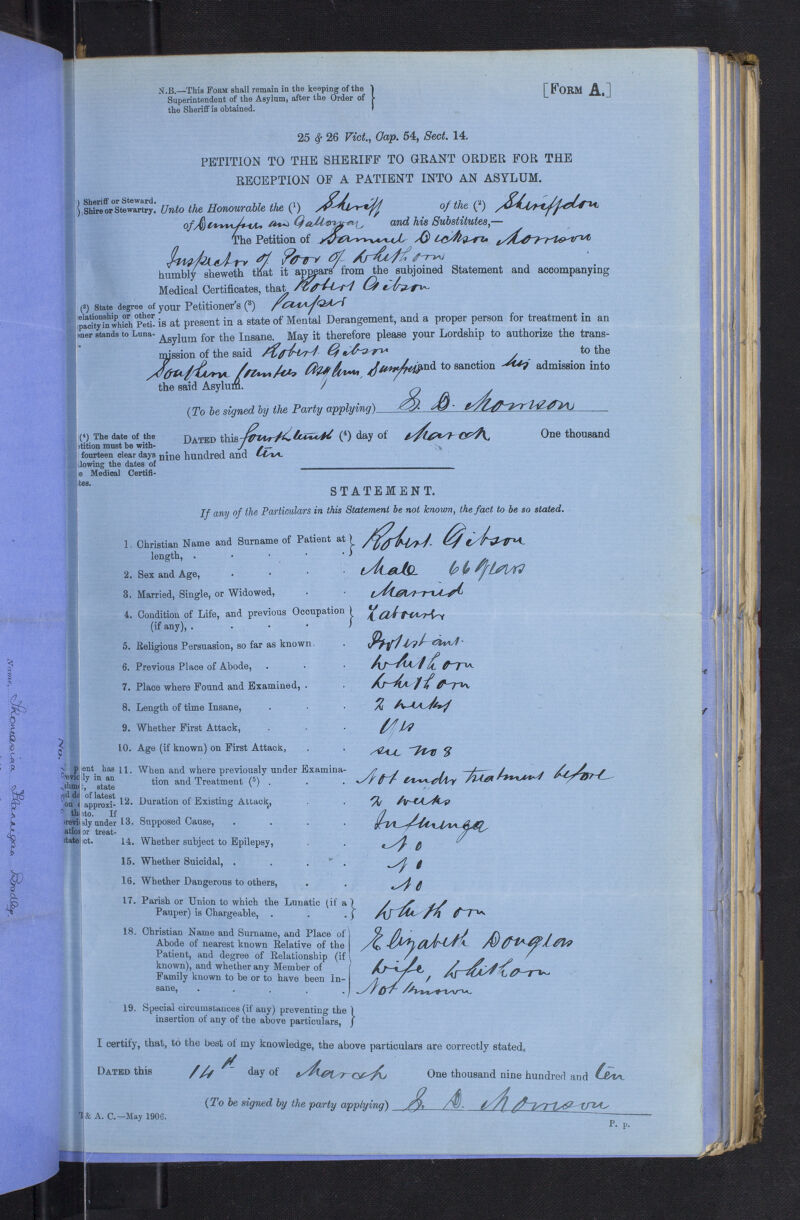 N.B.—This Form shall remain in the keeping of the
Superintendent of the Asylum, after the Order of
the Sheriff is obtained.
[Form A.]
25 & 26 Vict., Cap. 54, Sect. 14.
PETITION TO THE SHERIFF TO GRANT ORDER FOR THE
RECEPTION OF A PATIENT INTO AN ASYLUM.
) Sheriff or Steward.
) Shire or Stewartry.
Unto the Honourable the (¹) Sheriff of the (²) Sheriffdom
of Dumfries and Galloway and his Substitutes,—
The Petition of Samuel Dickson Morrison
Inspector of Poor of Whithorn
humbly sheweth that it appears from the subjoined Statement and accompanying
Medical Certificates, that Robert Gibson
(³) State degree of
elationship or other
pacity in which Peti-
oner stands to Luna-
your Petitioner's (³) Pauper
is at present in a state of Mental Derangement, and a proper person for treatment in an
Asylum for the Insane. May it therefore please your Lordship to authorize the trans-
mission of the said Robert Gibson to the
Southern Counties Asylum, Dumfries and to sanction his admission into
the said Asylum.
(To be signed by the Party applying) S. D. Morrison
(⁴) The date of the
tition must be with-
fourteen clear days
llowing the dates of
e Medical Certifi-
tes.
Dated this fourteenth (⁴) day of March One thousand
nine hundred and ten
STATEMENT.
If any of the Particulars in this Statement be not known, the fact to be so stated.
1. Christian Name and Surname of Patient at
length, . Robert Gibson
2. Sex and Age, Male 66 Years
3. Married, Single, or Widowed, Married
4. Condition of Life, and previous Occupation
(if any), . Labourer
5. Religious Persuasion, so far as known. Protestant
6. Previous Place of Abode, . Whithorn
7. Place where Found and Examined, . Whithorn
8. Length of time Insane, 2 weeks
9. Whether First Attack, Yes
10. Age (if known) on First Attack, see no 8
ent has
ly in an
state
of latest
approxi-
to. If
sly under
or treat-
ct.
11. When and where previously under Examina-
tion and Treatment (⁵) . Not under treatment before
12. Duration of Existing Attack, 2 weeks
13. Supposed Cause, Influenza
14. Whether subject to Epilepsy, No
15. Whether Suicidal, . No
16. Whether Dangerous to others, No
17. Parish or Union to which the Lunatic (if a
Pauper) is Chargeable, . Whithorn
18. Christian Name and Surname, and Place of
Abode of nearest known Relative of the
Patient, and degree of Relationship (if
known), and whether any Member of
Family known to be or to have been In-
sane,
Elizabeth Douglas
Wife, Whithorn
Not known
19. Special circumstances (if any) preventing the
insertion of any of the above particulars,
I certify, that, to the best of my knowledge, the above particulars are correctly stated.
Dated this 14th day of March One thousand nine hundred and ten
(To be signed by the party applying) S. D. Morrison
& A. C.—May 1906.
P. p.
No.
Name,